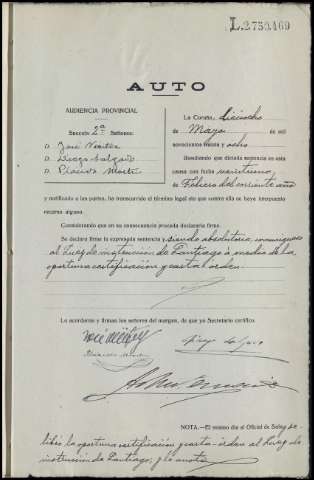 L.2750469
AUTO
AUDIENCIA PROVINCIAL
Sección 2ª Señores:
D. José
D. Diego Salgado
D. Plácido Martín
La Coruña dieciocho
de Mayo de mil
novecientos treinta y ocho
Resultando que dictada sentencia en esta
causa con fecha veintiuno
de Febrero del corriente año
y notificado a las partes, ha transcurrido el término legal sin que contra ella se haya interpuesto
recurso alguno.
Considerando que en su consecuencia procede declararla firme.
Se declara firme la expresada sentencia y siendo absolutoria, comuníquese
al Juez de instrucción de Santiago a medio de la
oportuna certificación y carta orden.
Lo acordaron y firman los señores del margen, de que yo Secretario certifico.
NOTA.—El mismo día el Oficial de Sala se
libró la oportuna certificación y carta-orden al Juez de
instrucción de Santiago; y lo anoto.